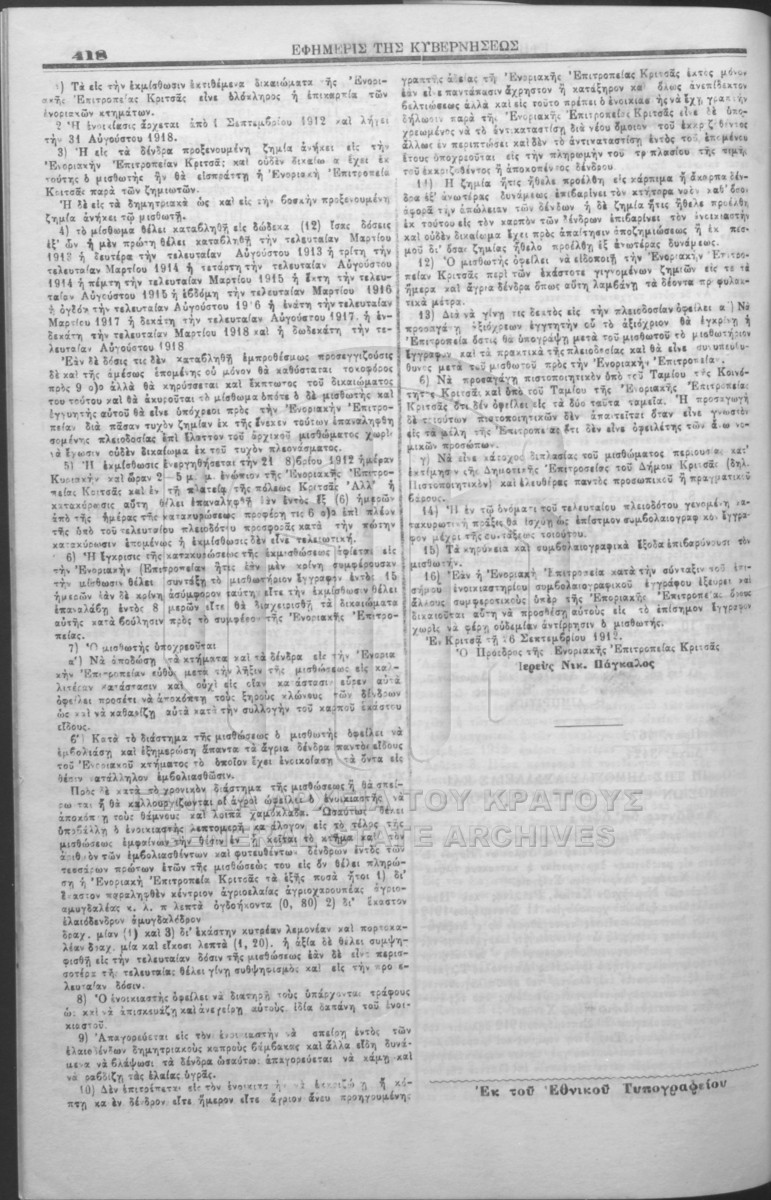 418
ΕΦΗΜΕΡΙΣ ΤΗΣ ΚΥΒΕΡΝΗΣΕΩΣ
) Τὰ εἰς τὴν ἐκμίσθωσιν ἐκτιθέμενα δικαιώματα τῆς Ἐνορι-
ακῆς Ἐπιτροπείας Κριτσᾶς εἶνε ὁλόκληρος ἡ ἐπικαρπία τῶν
ἐνοριακῶν κτημάτων.
2 Ἡ ἐνοικίασις ἄρχεται ἀπὸ 1 Σεπτεμβρίου 1912 καὶ λήγει
τὴν 31 Αὐγούστου 1918.
3) Ἡ εἰς τὰ δένδρα προξενουμένη ζημία ἀνήκει εἰς τὴν
Ἐνοριακὴν Ἐπιτροπείαν Κριτσᾶς καὶ οὐδὲν δικαίωμα ἔχει ἐκ
τούτης ὁ μισθωτὴς ἣν θὰ εἰσπράττῃ ἡ Ἐνοριακὴ Ἐπιτροπεία
Κριτσᾶς παρὰ τῶν ζημιωτῶν.
Ἡ δὲ εἰς τὰ δημητριακὰ ὡς καὶ εἰς τὴν βοσκὴν προξενουμένη
ζημία ἀνήκει τῷ μισθωτῇ.
4) τὸ μίσθωμα θέλει καταβληθῇ εἰς δώδεκα (12) ἴσας δόσεις
ἐξ' ὧν ἡ μὲν πρώτη θέλει καταβληθῇ τὴν τελευταίαν Μαρτίου
1913 ἡ δευτέρα τὴν τελευταίαν Αὐγούστου 1913 ἡ τρίτη τὴν
τελευταίαν Μαρτίου 1914 ἡ τετάρτη τὴν τελευταίαν Αὐγούστου
1914 ἡ πέμπτη τὴν τελευταίαν Μαρτίου 1915 ἡ ἕκτη τὴν τελευ-
ταίαν Αὐγούστου 1915 ἡ ἑβδόμη τὴν τελευταίαν Μαρτίου 1916
ἡ ὀγδόη τὴν τελευταίαν Αὐγούστου 1916 ἡ ἐνάτη τὴν τελευταίαν
Μαρτίου 1917 ἡ δεκάτη τὴν τελευταίαν Αὐγούστου 1917. ἡ ἑν-
δεκάτη τὴν τελευταίαν Μαρτίου 1918 καὶ ἡ δωδεκάτη τὴν τε-
λευταίαν Αὐγούστου 1918
Ἐὰν δὲ δόσις τις δὲν καταβληθῇ ἐμπροθέσμως προσεγγιζούσης
δὲ καὶ τῆς ἀμέσως ἑπομένης οὐ μόνον θὰ καθύσταται τοκοφόρος
πρὸς 9 ο)ο ἀλλὰ θὰ κηρύσσεται καὶ ἔκπτωτος τοῦ δικαιώματος
του τούτου καὶ θὰ ἀκυροῦται τὸ μίσθωμα ὁπότε ὁ δὲ μισθωτὴς καὶ
ἐγγυητὴς αὐτοῦ θὰ εἶνε ὑπόχρεοι πρὸς τὴν Ἐνοριακὴν Ἐπιτρο-
πείαν διὰ πᾶσαν τυχὸν ζημίαν ἐκ τῆς ἕνεκεν τούτων ἐπαναληφθη
σομένης πλειοδοσίας ἐπὶ ἔλαττον τοῦ ἀρχικοῦ μισθώματος χωρὶς
νὰ ἔχωσιν οὐδὲν δικαίωμα ἐκ τοῦ τυχὸν πλεονάσματος.
5) Ἡ ἐκμίσθωσις ἐνεργηθήσεται τὴν 21 8)βρίου 1912 ἡμέραν
Κυριακὴν καὶ ὥραν 2—5 μ. μ. ἐνώπιον τῆς Ἐνοριακῆς Ἐπιτρο-
πείας Κριτσᾶς καὶ ἐν τῇ πλατείᾳ τῆς πόλεως Κριτσᾶς Ἀλλ' ἡ
κατακύρωσις αὕτη θέλει ἐπαναληφθῇ ἐὰν ἐντὸς ἓξ (6) ἡμερῶν
ἀπὸ τῆς ἡμέρας τῆς κατακυρώσεως προφέρῃ τις 6 ο)ο ἐπὶ πλέον
τῆς ὑπὸ τοῦ τελευταίου πλειοδότου προσφορᾶς κατὰ τὴν πρώτην
κατακύρωσιν ἑπομένως ἡ ἐκμίσθωσις δὲν εἶνε τελειωτική.
6) Ἡ ἔγκρισις τῆς κατακυρώσεως τῆς ἐκμισθώσεως ἀφίεται εἰς
τὴν Ἐνοριακὴν (Ἐπιτροπείαν ἥτις ἐὰν μὲν κρίνῃ συμφέρουσαν
τὴν μίσθωσιν θέλει συντάξῃ τὸ μισθωτήριον ἔγγραφον ἐντὸς 15
ἡμερῶν ἐὰν δὲ κρίνῃ ἀσύμφορον ταύτην εἴτε τὴν ἐκμίσθωσιν θέλει
ἐπαναλάβῃ ἐντὸς 8 ἡμερῶν εἴτε θὰ διαχειρισθῇ τὰ δικαιώματα
αὐτῆς κατὰ βούλησιν πρὸς τὸ συμφέρον τῆς Ἐνοριακῆς Ἐπιτρο-
πείας.
7) Ὁ μισθωτὴς ὑποχρεοῦται
α') Νὰ ἀποδώσῃ τὰ κτήματα καὶ τὰ δένδρα εἰς τὴν Ἐνορια
κὴν Ἐπιτροπείαν εὐθὺς μετὰ τὴν λῆξιν τῆς μισθώσεως εἰς καλ-
λιτέραν κατάστασιν καὶ οὐχὶ εἰς οἵαν κατάστασιν εὗρεν αὐτὰ
ὀφείλει προσέτι νὰ ἀποκόπτῃ τοὺς ξηροὺς κλώνους τῶν δένδρων
ὡς καὶ νὰ καθαρίζῃ αὐτὰ κατὰ τὴν συλλογὴν τοῦ καρποῦ ἑκάστου
εἴδους.
β') Κατὰ τὸ διάστημα τῆς μισθώσεως ὁ μισθωτὴς ὀφείλει νὰ
ἐμβολιάσῃ καὶ ἐξημερώσῃ ἅπαντα τὰ ἄγρια δένδρα παντὸς εἴδους
τοῦ Ἐνοριακοῦ κτήματος τὸ ὁποῖον ἔχει ἐνοικοίαση τὰ ὄντα εἰς
θέσιν κατάλληλον ἐμβολιασθῶσιν.
Πρὸς δὲ κατὰ τὸ χρονικὸν διάστημα τῆς μισθώσεως ἢ θὰ σπεί-
ρωνται ἢ θὰ καλλουργίζωνται οἱ ἀγροὶ ὠφείλει ὁ ἐνοικιαστὴς νὰ
ἀποκόπτῃ τοὺς θάμνους καὶ λοιπὰ χαμόκλαδα. Ὡσαύτως θέλει
ὑποβάλλῃ ὁ ἐνοικιαστὴς λεπτομερῆ κατάλογον εἰς τὸ τέλος τῆς
μισθώσεως ἐμφαίνων τὴν θέσιν ἐν ᾗ κεῖται τὸ κτῆμα καὶ τὸν
ἀριθμὸν τῶν ἐμβολιασθέντων καὶ φυτευθέντων δένδρων ἐντὸς τῶν
τεσσάρων πρώτων ἐτῶν τῆς μισθώσεώς του εἰς ὃν θέλει πληρώ-
σῃ ἡ Ἐνοριακὴ Ἐπιτροπεία Κριτσᾶς τὰ ἑξῆς ποσὰ ἤτοι 1) δι'
ἕκαστον παραληφθὲν κέντριον ἀγριοελαίας ἀγριοχαρουπέας ἀγριο-
αμυγδαλέας κ. λ. π λεπτὰ ὀγδοήκοντα (0, 80) 2) δι' ἕκαστον
ἐλαιόδενδρον ἀμυγδαλόδρον
δραχ. μίαν (1) καὶ 3) δι' ἑκάστην κυτρέαν λεμονέαν καὶ πορτοκα-
λέαν δραχ. μία καὶ εἴκοσι λεπτὰ (1, 20). ἡ ἀξία δὲ θέλει συμψη-
φισθῇ εἰς τὴν τελευταίαν δόσιν τῆς μισθώσεως ἐὰν δὲ εἶνε περισ-
σοτέρα τῆς τελευταίας θέλει γίνῃ συθψηφισμὸς καὶ εἰς τὴν προτε-
λευταίαν δόσιν.
8) Ὁ ἐνοικιαστὴς ὀφείλει νὰ διατηρῇ τοὺς ὑπάρχοντας τράφους
ὡς καὶ νὰ ἀπισκευάζῃ καὶ ἀνεγείρῃ αὐτοὺς ἰδίᾳ δαπάνῃ τοῦ ἐνοι-
κιαστοῦ.
9) Ἀπαγορεύεται εἰς τὸν ἐνοικιαστὴν νὰ σπείρῃ ἐντὸς τῶν
ἐλαιοδένδων δημητριακοὺς καρποὺς βάμβακας καὶ ἄλλα εἴδη δυνά-
μενα νὰ βλάψωσι τὰ δένδρα ὡσαύτως ἀπαγορεύεται νὰ χάμῃ καὶ
νὰ ραβδίζῃ τὰς ἐλαίας ὑγράς.
10) Δὲν ἐπιτρέπεται εἰς τὸν ἐνοικιαστὴν νὰ ἐκριζώσῃ ἢ κό-
πτῃ κανὲν δένδρον εἴτε ἥμερον εἴτε ἄγριον ἄνευ προηγουμένης
γραπτῆς ἀδείας τῆς Ἐνοριακῆς Ἐπιτροπείας Κριτσᾶς ἐκτὸς μόνον
ἐὰν εἶνε παντάπασιν ἄχρηστον ἢ κατάξηρον καὶ ὅλως ἀνεπίδεκτον
βελτιώσεως ἀλλὰ καὶ εἰς τοῦτο πρέπει ὁ ἐνοικιαστὴς νὰ ἔχῃ γραπτὴν
δήλωσιν παρὰ τῆς Ἐνοριακῆς Ἐπιτροπείας Κριτσᾶς εἶνε δὲ ὑπο-
χρεωμένος νὰ τὸ ἀντικαταστήσῃ διὰ νέου ὁμοίου τοῦ ἐκριζωθέντος
ἄλλως ἐν περιπτώσει καὶ δὲν τὸ ἀντικαταστήσῃ ἐντὸς τοῦ ἑπομένου
ἔτους ὑποχρεοῦται εἰς τὴν πληρωμὴν τοῦ τριπλασίου τῆς τιμῆς
τοῦ ἐκριζωθέντος ἢ ἀποκοπέντος δένδρου
11) Ἡ ζημία ἥτις ἤθελε προέλθη εἰς κάρπιμα ἢ ἄκαρπα δέν-
δρα ἐξ' ἀνωτέρας δυνάμεως ἐπιβαρίνει τὸν κτήτορα ναὸν καθ' ὅσον
ἀφορᾷ τὴν ἀπώλειαν τῶν δένδων ἡ δὲ ζημία ἥτις ἤθελε προέλθῃ
ἐκ τούτου εἰς τὸν καρπὸν τῶν δένδρων ἐπιβαρίνει τὸν ἐνοικιαστὴν
καὶ οὐδὲν δικαίωμα ἔχει πρὸς ἀπαίτησιν ἀποζημιώσεως ἢ ἐκ πεσ-
μοῦ δι' ὅσαν ζημίας ἤθελε προέλθῃ ἐξ ἀνωτέρας δυνάμεως.
12) Ὁ μισθωτὴς ὀφείλει νὰ εἰδοποιῇ τὴν Ἐνοριακὴν Ἐπιτρο-
πείαν Κριτσᾶς περὶ τῶν ἑκάστοτε γιγνομένων ζημιῶν εἰς τε τὰ
ἥμερα καὶ ἄγρια δένδρα ὅπως αὕτη λαμβάνῃ τὰ δέοντα προφυλα-
κτικὰ μέτρα.
13) Διὰ νὰ γίνῃ τις δεκτὸς εἰς τὴν πλειοδοσίαν ὀφείλει α') Νὰ
προσαγάγῃ ἀξιόχρεων ἐγγητὴν οὗ τὸ ἀξιόχριον θὰ ἐγκρίνῃ ἡ
Ἐπιτροπεία ὅστις θὰ ὑπογράψῃ μετὰ τοῦ μισθωτοῦ τὸ μισθωτήριον
ἔγγραφον καὶ τὰ πρακτικὰ τῆς πλειοδοσίας καὶ θὰ εἶνε συνυπευ-
θυνος μετὰ τοῦ μισθωτοῦ πρὸς τὴν Ἐνοριακὴν Ἐπιτροπείαν.
β) Νὰ προσαγάγῃ πιστοποιητικὸν ὑπὸ τοῦ Ταμίου τῆς Κοινό-
τητος Κριτσᾶς καὶ ὑπὸ τοῦ Ταμίου τῆς Ἐνοριακῆς Ἐπιτροπείας
Κριτσᾶς ὅτι δὲν ὀφείλει εἰς τὰ δύο ταῦτα ταμεῖα. Ἡ προσαγωγὴ
δὲ τοιούτων πιστοποιητικῶν δὲν ἀπαιτεῖται ὅταν εἶνε γνωστὸν
εἰς τὰ μέλη τῆς Ἐπιτροπείας ὅτι δὲν εἶνε ὀφειλέτης τῶν ἄνω νο-
μικῶν προσώπων.
γ) Νὰ εἶνε κάτοχος διπλασίας τοῦ μισθώματος περιουσίας κατ'
ἐκτίμησιν τῆς Δημοτικῆς Ἐπιτροπείας τοῦ Δήμου Κριτσᾶς (δηλ.
Πιστοποιητικὸν) καὶ ἐλευθέρας παντὸς προσωπικοῦ ἢ πραγματικοῦ
βάρους.
14) Ἡ ἐν τῷ ὀνόματι τοῦ τελευταίου πλειοδότου γενομένη κα-
τακυρωτικὴ πρᾶξις θὰ ἰσχύῃ ὡς ἐπίσημον συμβολαιογραφικὸν ἔγγρα-
φον μέχρι τῆς συντάξεως τοιούτου.
15) Τὰ κηρύκεια καὶ συμβολαιογραφικὰ ἔξοδα ἐπιβαρύνουσι τὸν
μισθωτήν.
16) Ἐὰν ἡ Ἐνοριακὴ Ἐπιτροπεία κατὰ τὴν σύνταξιν τοῦ ἐπι-
σήμου ἐνοικιαστηρίου συμβολαιογραφικοῦ ἐγγράφου ἐξεύρει καὶ
ἄλλους συμφεροτικοὺς ὑπὲρ τῆς Ἐνοριακῆς Ἐπιτροπείας ὅρους
δικαιοῦται αὕτη νὰ προσθέσῃ αὐτοὺς εἰς τὸ ἐπίσημον ἔγγραφον
χωρὶς νὰ φέρῃ οὐδεμίαν ἀντίρρησιν ὁ μισθωτής.
Ἐν Κριτσᾷ τῇ 6 Σεπτεμβρίου 1912.
Ὁ Πρόεδρος τῆς Ἐνοριακῆς Ἐπιτροπείας Κριτσᾶς
Ἱερεὺς Νικ. Πάγκαλος
Ἐκ τοῦ Ἐθνικοῦ Τυπογραφείου
ΤΟΥ ΚΡΑΤΟΥΣ
ARCHIVES